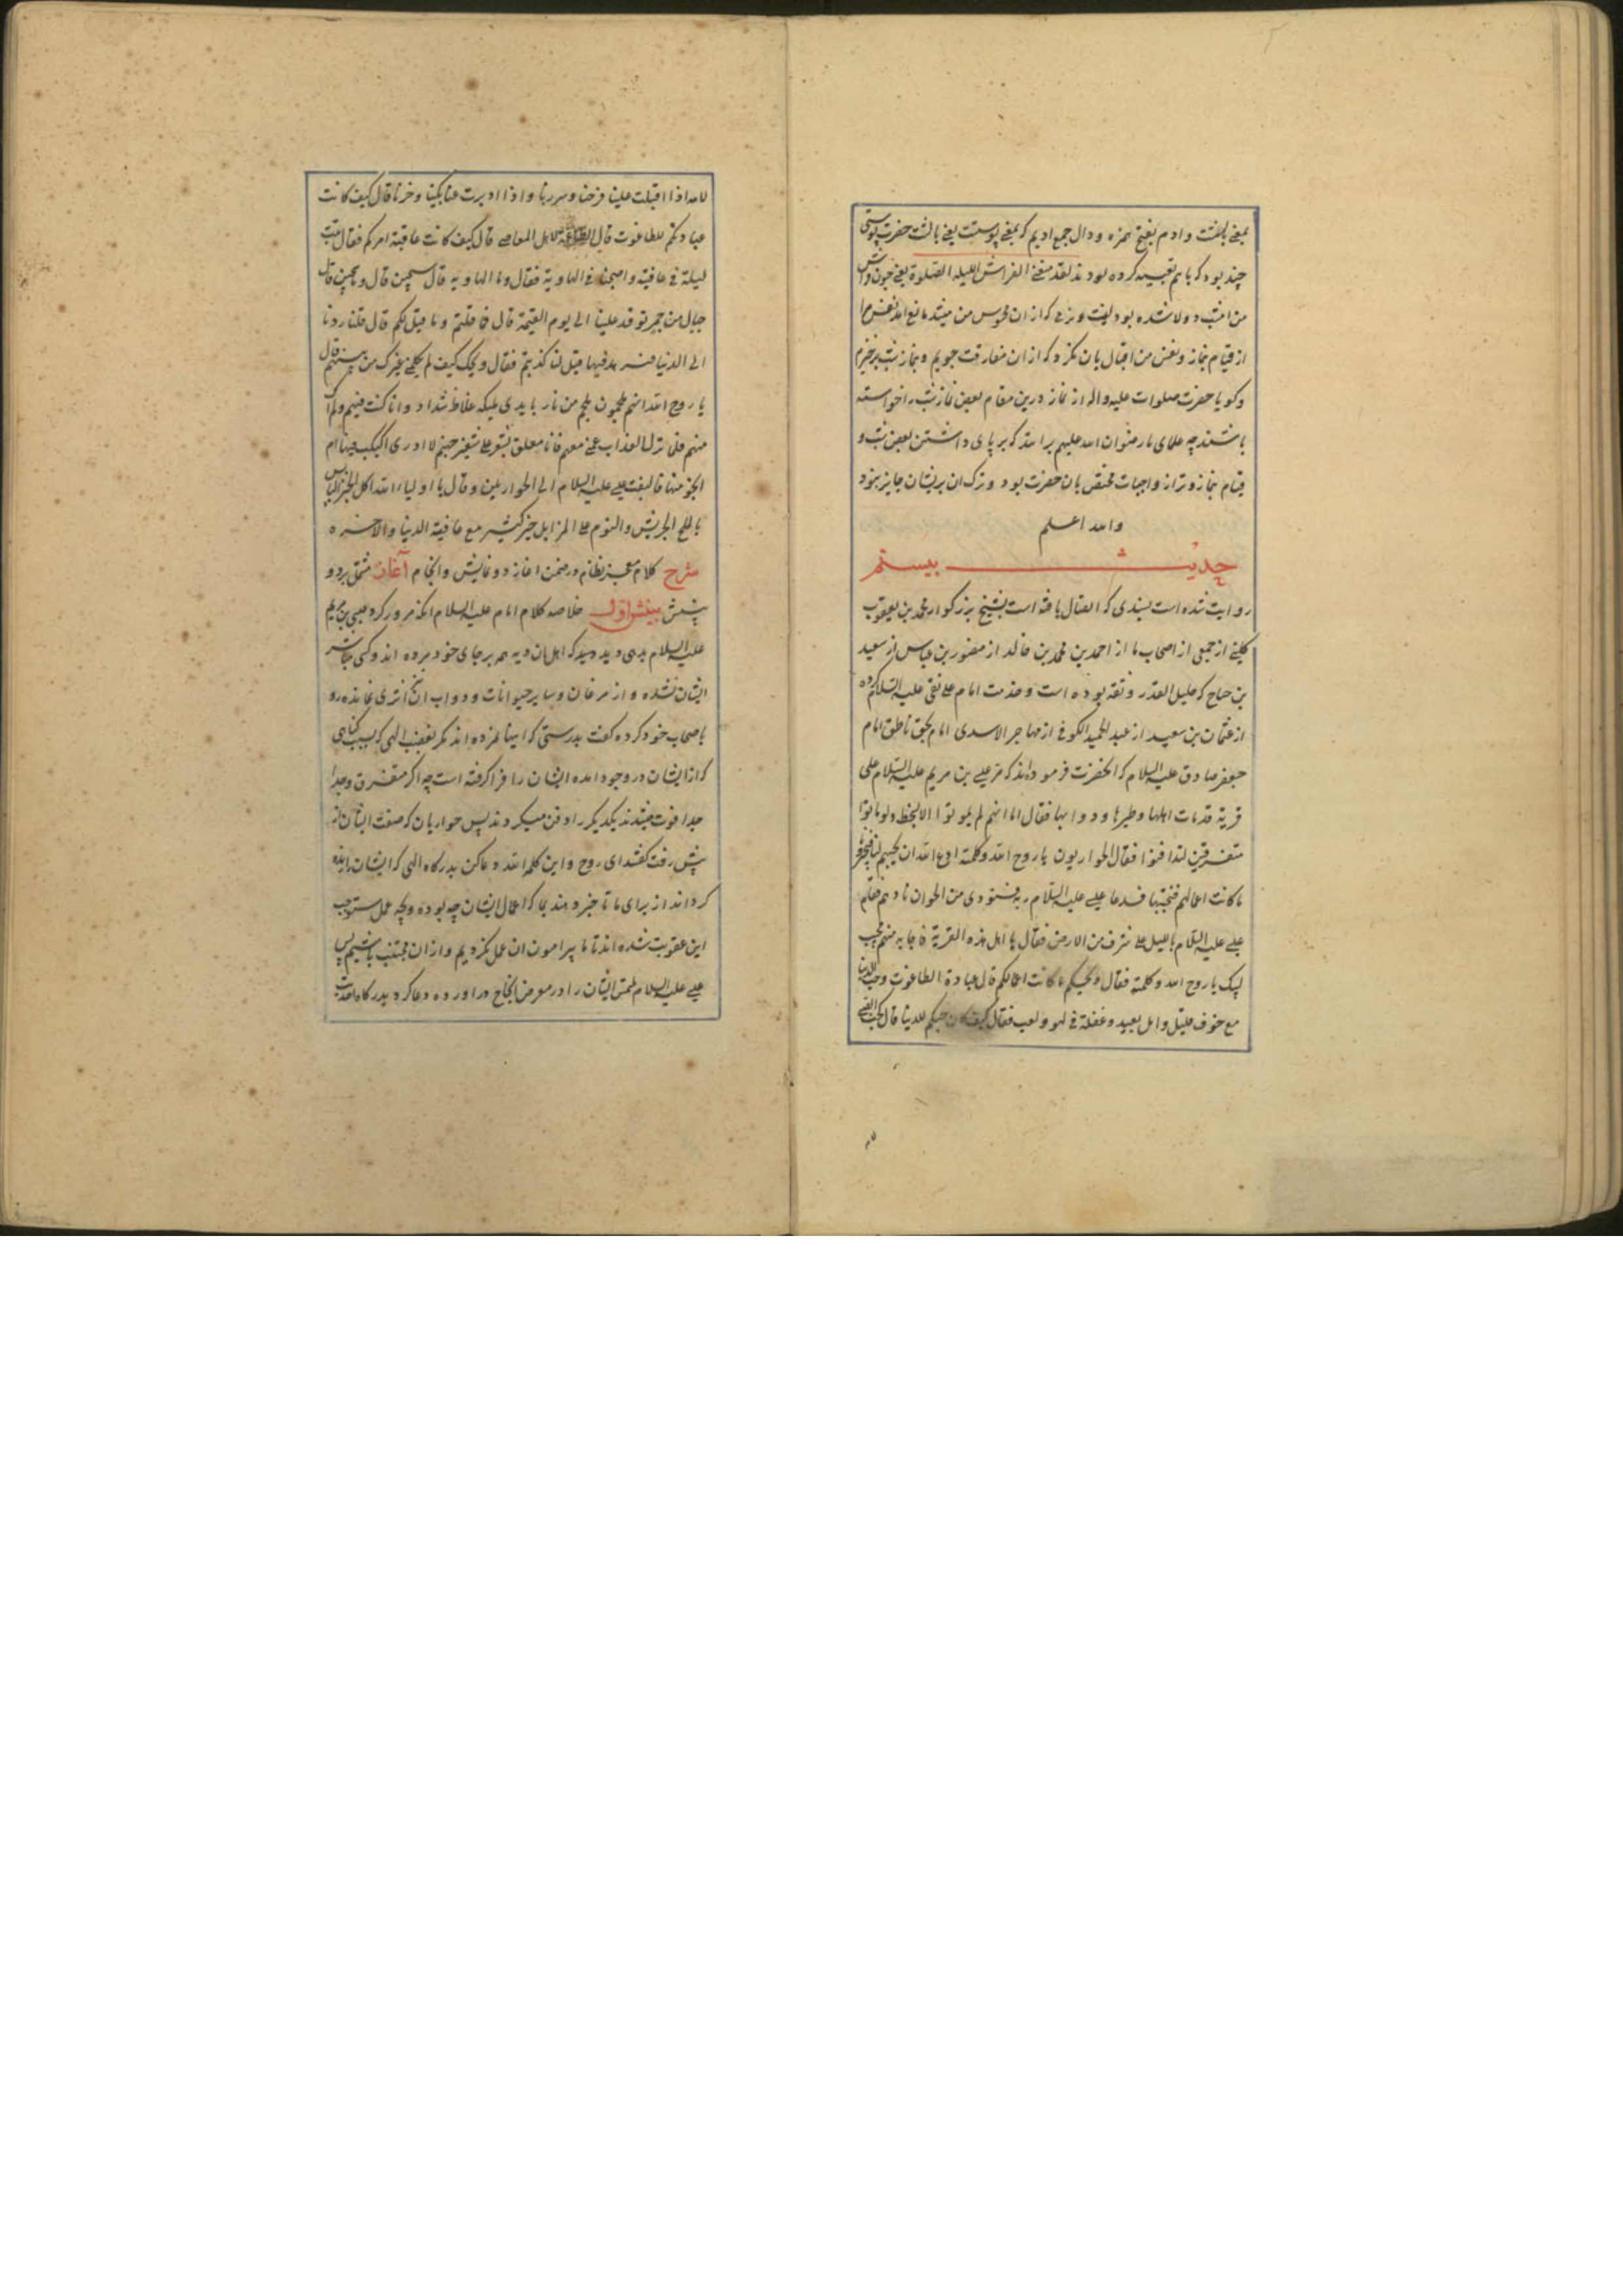 بمعنی بالشت وادم بفتح همزه و دال جمع ادیم که بمعنی پوستست یعنی بالشت حضرت پوستی
چند بود که باهم تعبیه کرده بودند لقد منعنی الفراش اللیله الصلوة یعنی چون فراش
من امشب دولا شده بود لینت و نرمی که از ان محسوس من میشد مانع امد نفس مرا
از قیام نماز و نفس من اقبال بان نکرد که از ان مفارقت جویم و بنماز شب برخیزم
و کویا حضرت صلوات علیه واله از نماز درین مقام بعض نماز شب را خواسته
باشند چه علمای ما رضوان الله علیهم برانند که برپای داشتن بعض شب و
قیام بنماز وتر از واجبات مختص بان حضرت بود و ترک ان بریشان جایز نبود
والله اعلم
حدیث بیستم
روایت شده است بسندی که اتصال یافته است بشیخ بزرکوار محمد بن یعقوب
کلینی از جمعی از اصحاب ما از احمد بن محمد بن خالد از منصور بن عباس از سعید
بن جناح که جلیل القدر و ثقه بوده است و خدمت امام علی نقی علیه السلام کرده
از عثمان بن سعید از عبد الحمید الکوفی از مهاجر الاسدی امام بحق ناطق امام
جعفر صادق علیه السلام که انحضرت فرموده اند که مر عیسی بن مریم علیه السلام علی
قریة قد مات اهلها و طیرها و دوابها فقال اما انهم لم یموتوا الا بسخط ولو ماتوا
متفرقین لتدافنوا فقال الحواریون یا روح الله و کلمته ادع الله ان یحییهم لنا فیخبرونا
ما کانت اعمالهم فنجتنبها فدعا عیسی علیه السلام ربه فنودی من الجو ان نادهم فقام
عیسی علیه السلام باللیل علی شرف من الارض فقال یا اهل هذه القریة فاجابه منهم مجیب
لبیک یا روح الله و کلمته فقال ویحکم ما کانت اعمالکم قال عبادة الطاغوت و حب الدنیا
مع خوف قلیل و امل بعید و غفلة فی لهو و لعب فقال کیف کان حبکم للدنیا قال کحب الصبی
لامه اذا اقبلت علینا فرحنا و سررنا و اذا ادبرت عنا بکینا و حزنا قال کیف کانت
عبادتکم للطاغوت قال الطاعة لاهل المعاصی قال کیف کانت عاقبة امرکم فقال بتنا
لیلة فی عافیة و اصبحنا فی الهاویة فقال و ما الهاویه قال سجین قال و ما سجین قال
جبال من جمر توقد علینا الی یوم القیمة قال فما قلتم و ما قیل لکم قال قلنا ردنا
الی الدنیا فنزهد فیها قیل لنا کذبتم فقال ویحک کیف لم یکلمنی غیرک من بینهم قال
یا روح الله انهم ملجمون بلجم من نار بایدی ملئکه غلاظ شداد و انا کنت فیهم و لم اک
منهم فلما نزل العذاب عمنی معهم فانا معلق بشعرة علی شفیر جهنم لا ادری اکبکب فیها ام
انجو منها فالتفت عیسی علیه السلام الی الحواریین و قال یا اولیاء الله اکل الخبز الیابس
بالملح الجریش والنوم علی المزابل خیر کثیر مع عافیة الدنیا والاخره
شرح کلام معجز نظام در ضمن اغاز و دو نمایش وانجام آغاز مشتمل بر دو
بینش بینش اول خلاصه کلام امام علیه السلام انکه مرور کرد عیسی بن مریم
علیه السلام بدهی و دید که اهل ان دیه همه بر جای خود مرده اند و کسی مباشر
ایشان نشده و از مرغان و سایر حیوانات و دواب ان اثری نمانده رو
باصحاب خود کرده کفت بدرستی که اینها نمرده اند مکر بغضب الهی که بسبب کناهی
که از ایشان در وجود امده ایشان را فرا کرفته است چه اکر متفرق و جدا
جدا فوت میشدند یکدیکر را دفن میکردند پس حواریان که صفت ایشان از
پیش رفت کفتند ای روح و این کلمه الله دعا کن بدرکاه الهی که ایشان را زنده
کرداند از برای ما تا خبر دهند بما که اعمال ایشان چه بوده و بچه عمل مستوجب
این عقوبت شده اند تا ما پیرامون ان عمل نکردیم و از ان مجتنب باشیم پس
عیسی علیه السلام ملتمس ایشان را در معرض انجاح در اورده دعا کرد بدرکاه احدیت